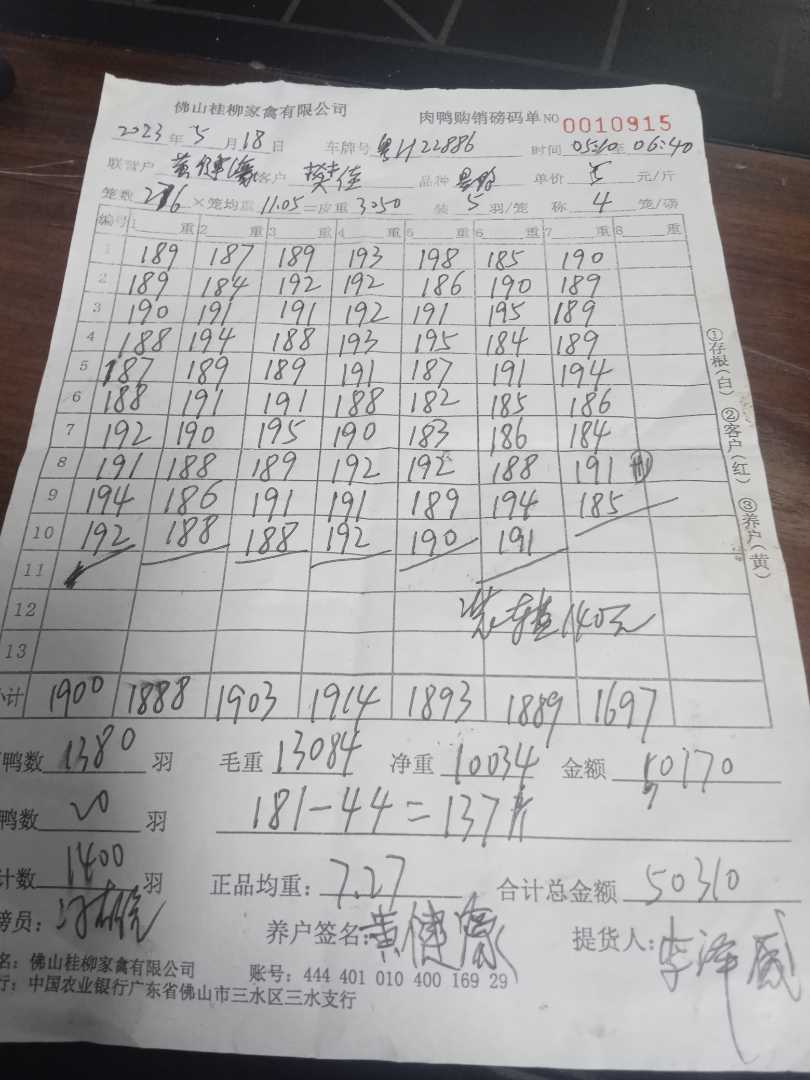 佛山桂柳家禽有限公司 肉鸭购销磅码单 NO 0010915
2023年5月18日 车牌号 粤H22886 时间 05:10至06:40
联营户 黄健濠 客户 樊佳 品种 单价 5 元/斤
笼数 276 ×笼均重 11.05 =皮重 3050 装 5 羽/笼 称 4 笼/磅
编号 1 重 2 重 3 重 4 重 5 重 6 重 7 重 8 重
1 189 187 189 193 198 185 190
2 189 184 192 192 186 190 189
3 190 191 191 192 191 195 189
4 188 194 188 193 195 184 189
5 187 189 189 191 187 191 194
6 188 191 191 188 182 185 186
7 192 190 195 190 183 186 184
8 191 188 189 192 192 188 191
9 194 186 191 191 189 194 185
10 192 188 188 192 190 191
11
12 140元
13
小计 1900 1888 1903 1914 1893 1889 1697
鸭数 1380 羽 毛重 13084 净重 10034 金额
鸭数 20 羽 181-44=137斤
计数 1400 羽 正品均重: 7.27 合计总金额 50310
磅员: 养户签名: 黄健濠 提货人: 李泽威
名: 佛山桂柳家禽有限公司 账号: 444 401 010 400 169 29
行: 中国农业银行广东省佛山市三水区三水支行
①存根(白) ②客户(红) ③养户(黄)